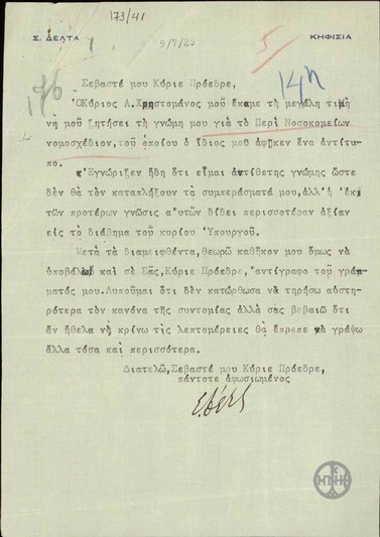 173/41
Σ. ΔΕΛΤΑ
ΚΗΦΙΣΙΑ
9/7/29
5
14η
Σεβαστέ μου Κύριε Πρόεδρε,
Ὁ Κύριος Α. Χρηστομάνος μοῦ ἔκαμε τὴ μεγάλη τιμὴ
νὰ μοῦ ζητήσει τὴ γνώμη μου γιὰ τὸ Περὶ Νοσοκομείων
νομοσχέδιον, τοῦ ὁποίου ὁ ἴδιος μοῦ ἀφῆκεν ἕνα ἀντίτυ-
πο.
Ἐγνώριζεν ἤδη ὅτι εἶμαι ἀντίθετης γνώμης ὥστε
δὲν θὰ τὸν καταπλήξουν τὰ συμπεράσματά μου, ἀλλ' ἡ ἐκ
τῶν προτέρων γνῶσις αὐτῶν δίδει περισσοτέραν ἀξίαν
εἰς τὸ διάβημα τοῦ κυρίου Ὑπουργοῦ.
Μετὰ τὰ διαμειφθέντα, θεωρῶ καθῆκον μου ὅμως νὰ
ὑποβάλω καὶ σὲ Σᾶς, Κύριε Πρόεδρε, ἀντίγραφο τοῦ γράμ-
ματός μου. Λυποῦμαι ὅτι δὲν κατώρθωσα νὰ τηρήσω αὐστη-
ρότερα τὸν κανόνα τῆς συντομίας ἀλλὰ σᾶς βεβαιῶ ὅτι
ἂν ἤθελα νὰ κρίνω τὶς λεπτομέρειες θὰ ἔπρεπε νὰ γράψω
ἄλλα τόσα καὶ περισσότερα.
Διατελῶ, Σεβαστέ μου Κύριε Πρόεδρε,
πάντοτε ἀφωσιωμένος